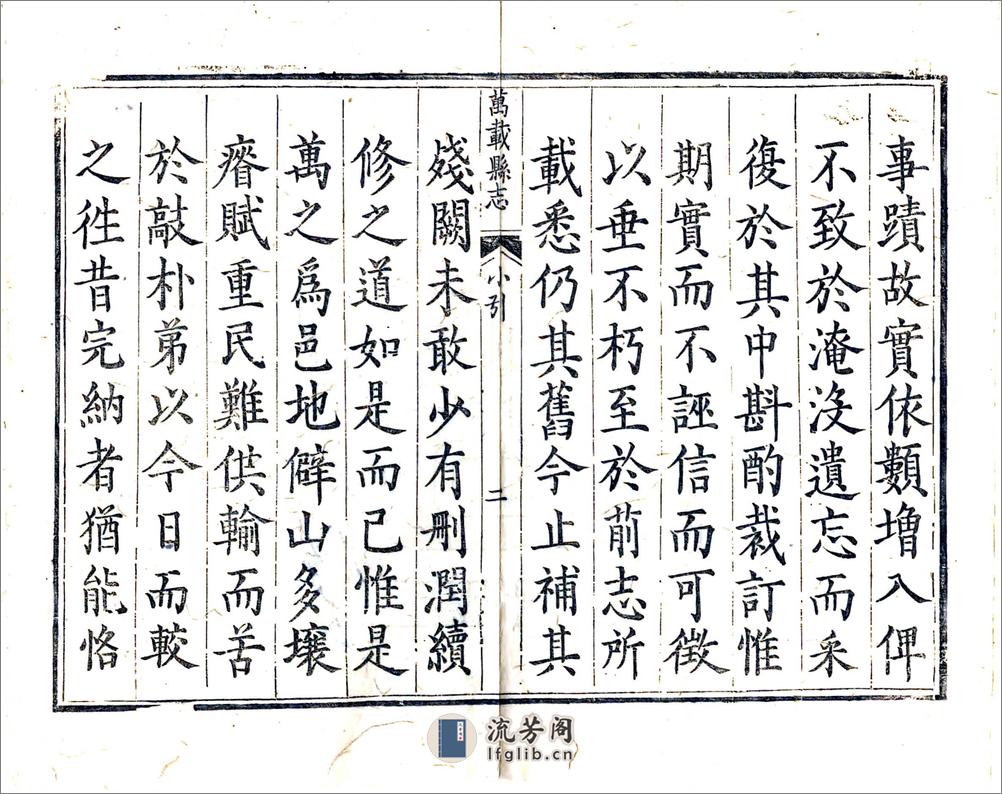 事蹟故實依類增入俾
不致於淹沒遺忘而采
復於其中斟酌裁訂惟
期實而不誣信而可徵
以垂不朽至於前志所
載悉仍其舊今止補其
萬載縣志 小引 二
殘闕未敢少有刪潤續
修之道如是而已惟是
萬之爲邑地僻山多壤
瘠賦重民難供輸而苦
於敲朴第以今日而較
之徃昔完納者猶能恪
流芳阁
lfglib.cn